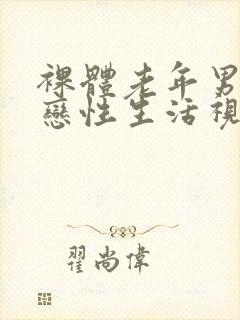 裸體老年男
戀性生活視
翟尚偉